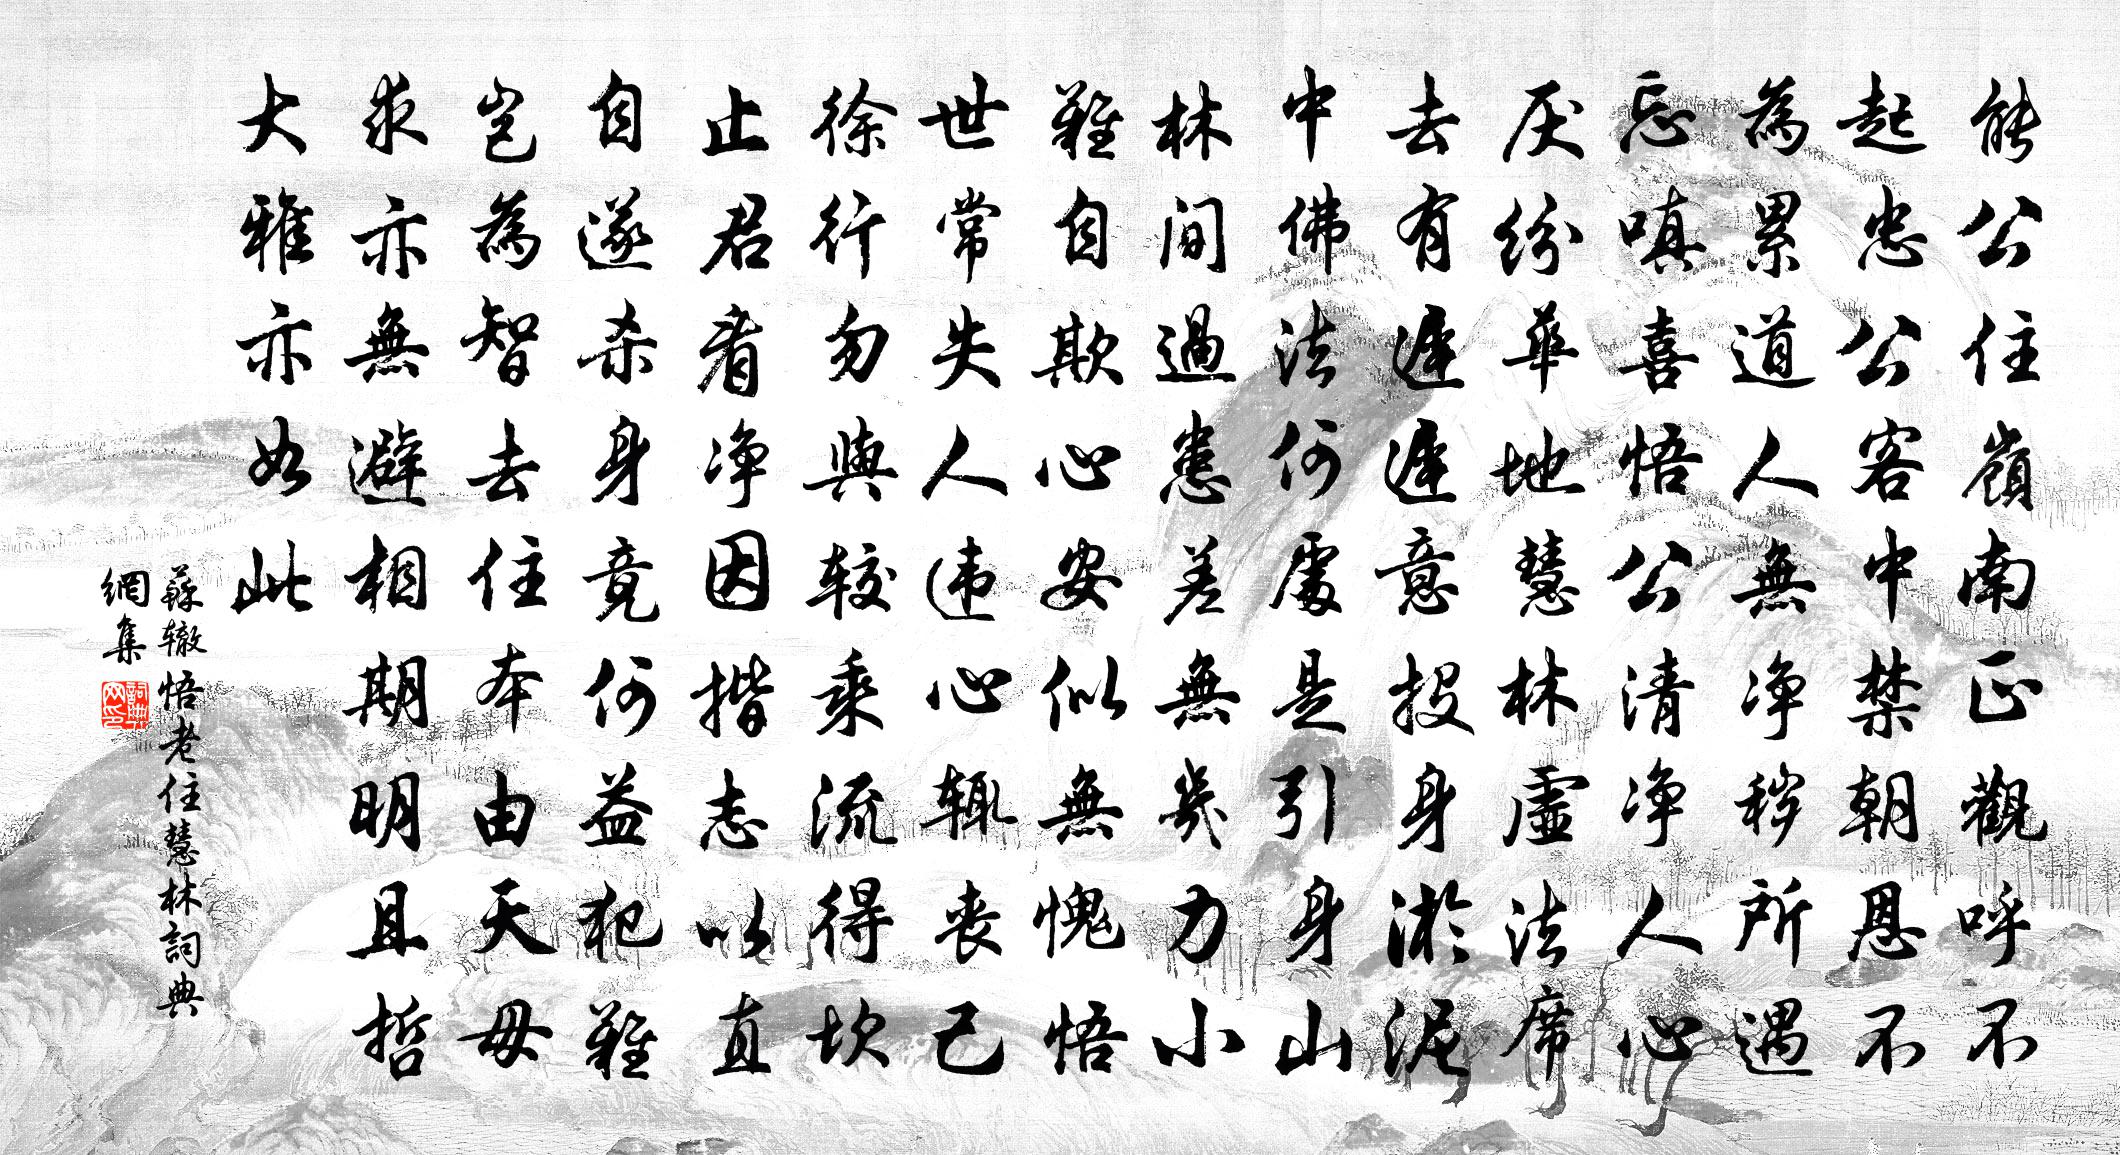 能公住嶺南正觀呼不
起忠公客中禁朝恩不
為累道人無净秽所遇
忘嗔喜悟公清净人心
厌纷華地慧林虛法席
去有遲遲意投身淤泥
中佛法何處是引身山
林間過患差無幾力小
難自欺心安似無愧悟
世常失人违心辄丧己
徐行勿與较乘流得坎
止君看净因揩志以直
自遂杀身竟何益犯難
岂為智去住本由天毋
求亦無避相期明且哲
大雅亦如此
蘇辙悟老住慧林詞典
網集